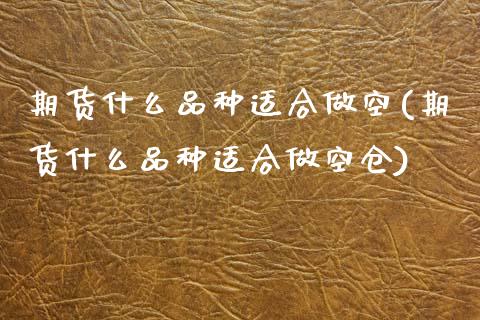 期货什么品种适合做空(期
货什么品种适合做空仓)